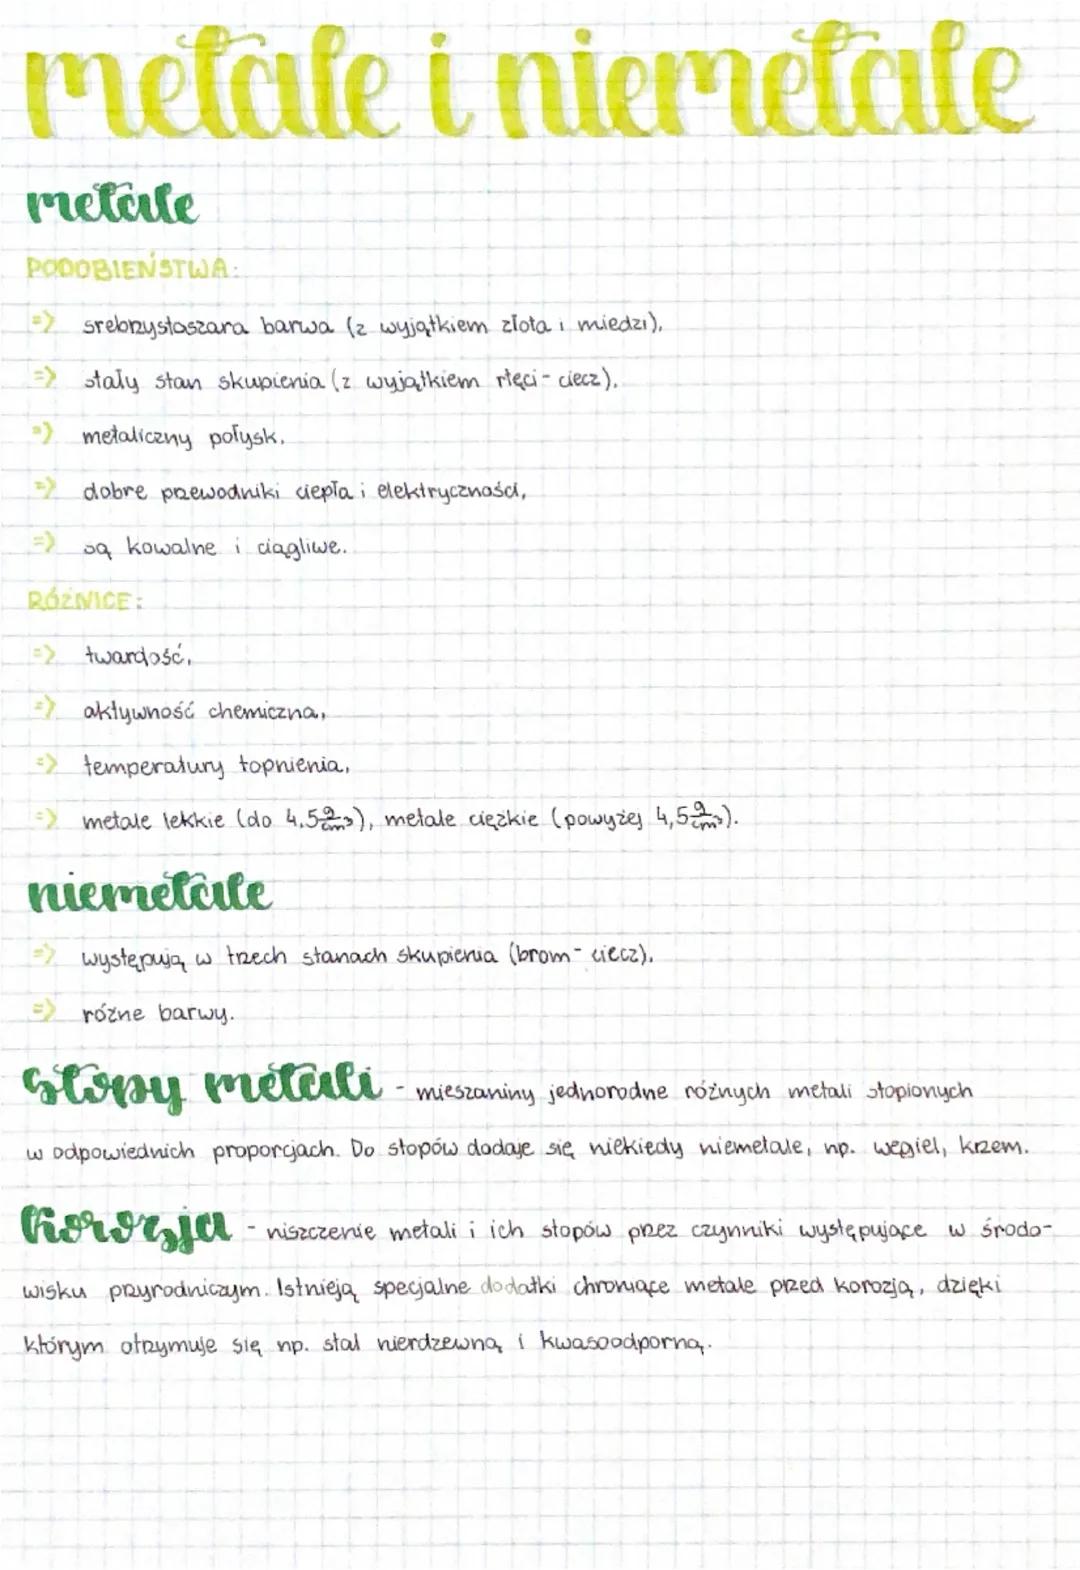 metale i niemetale
metale
PODOBIEŃSTWA:
=> srebrzystoszara barwa (z wyjątkiem złota i miedzi),
=> stały stan skupienia (z wyjątkiem rtęci - ciecz),
=> metaliczny połysk,
=> dobre przewodniki ciepła i elektryczności,
=> są kowalne i ciągliwe.
RÓŻNICE:
=> twardość,
=> aktywność chemiczna,
=> temperatury topnienia,
=> metale lekkie (do 4,5 g/cm³), metale ciężkie (powyżej 4,5 g/cm³).
niemetale
=> występują w trzech stanach skupienia (brom - ciecz),
=> różne barwy.
stopy metali - mieszaniny jednorodne różnych metali stopionych
w odpowiednich proporcjach. Do stopów dodaje się niekiedy niemetale, np. węgiel, krzem.
korozja - niszczenie metali i ich stopów przez czynniki występujące w środo-
wisku przyrodniczym. Istnieją specjalne dodatki chroniące metale przed korozją, dzięki
którym otrzymuje się np. stal nierdzewną i kwasoodporną.